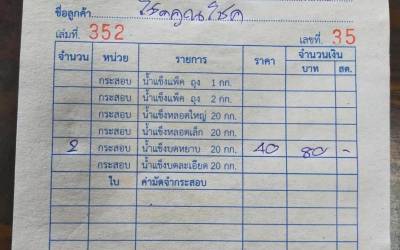 ชื่อลูกค้า
เล่มที่. 352 เลขที่. 35
จำนวน หน่วย รายการ ราคา จำนวนเงิน
บาท สต.
กระสอบ น้ำแข็งแพ็ค ถุง 1 กก.
กระสอบ น้ำแข็งแพ็ค ถุง 2 กก.
กระสอบ น้ำแข็งหลอดใหญ่ 20 กก.
กระสอบ น้ำแข็งหลอดเล็ก 20 กก.
2 กระสอบ น้ำแข็งบดหยาบ 20 กก. 40 80 -
กระสอบ น้ำแข็งบดละเอียด 20 กก.
ใบ ค่ามัดจำกระสอบ